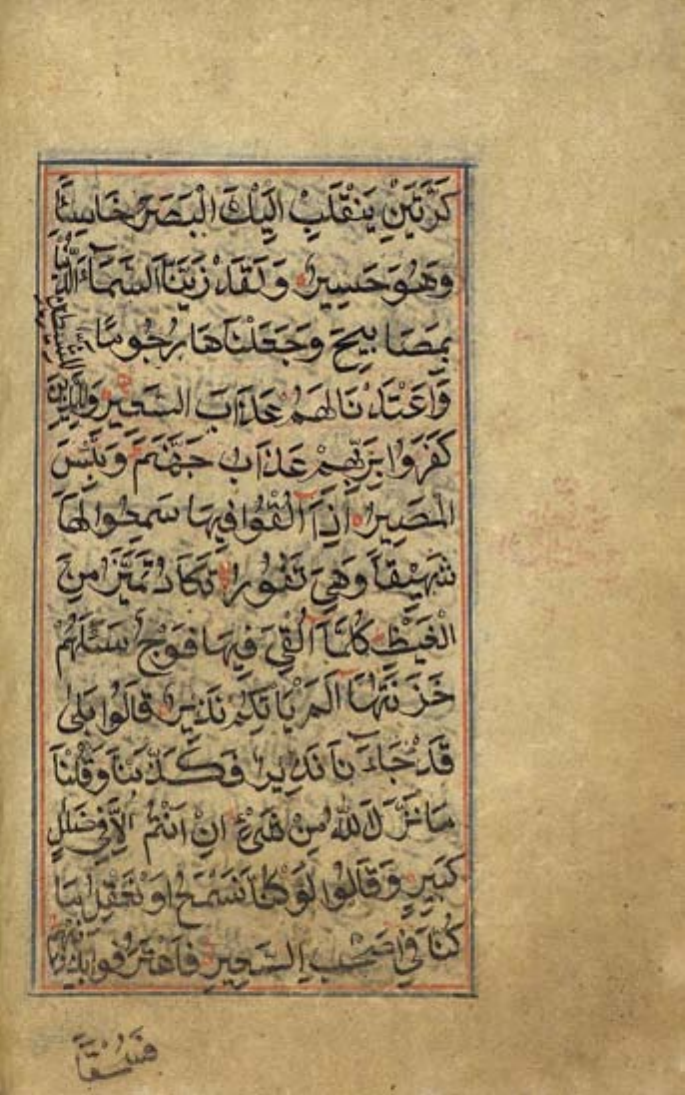 كَرَّتَيْنِ يَنْقَلِبْ اِلَيْكَ الْبَصَرُ خَاسِئًا
وَهُوَ حَسِيرٌ وَلَقَدْ زَيَّنَّا السَّمَاءَ الدُّنْيَا
بِمَصَابِيحَ وَجَعَلْنَاهَا رُجُومًا لِلشَّيٰطِينِ
وَاَعْتَدْنَا لَهُمْ عَذَابَ السَّعِيرِ وَلِلَّذِينَ
كَفَرُوا بِرَبِّهِمْ عَذَابُ جَهَنَّمَ وَبِئْسَ
الْمَصِيرُ اِذَآ اُلْقُوا فِيهَا سَمِعُوا لَهَا
شَهِيقًا وَهِيَ تَفُورُ تَكَادُ تَمَيَّزُ مِنَ
الْغَيْظِ كُلَّمَآ اُلْقِيَ فِيهَا فَوْجٌ سَئَلَهُمْ
خَزَنَتُهَآ اَلَمْ يَاْتِكُمْ نَذِيرٌ قَالُوا بَلٰى
قَدْ جَاءَنَا نَذِيرٌ فَكَذَّبْنَا وَقُلْنَا
مَا نَزَّلَ اللّٰهُ مِنْ شَيْءٍ اِنْ اَنْتُمْ اِلَّا فِي ضَلٰلٍ
كَبِيرٍ وَقَالُوا لَوْ كُنَّا نَسْمَعُ اَوْ نَعْقِلُ مَا
كُنَّا فِي اَصْحٰبِ السَّعِيرِ فَاعْتَرَفُوا بِذَنْبِهِمْ
فَسُحْقًا